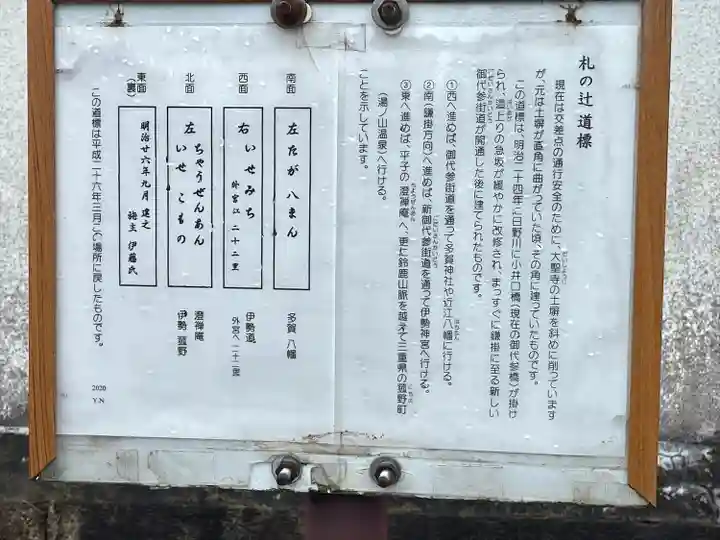 札の辻 道標
現在は交差点の通行安全のために、大聖寺の土塀を斜めに削っています
が、元は土塀が直角に曲がっていた頃、その角に建っていたものです。
この道標は、明治二十四年に日野川に小井口橋(現在の御代参橋)が掛け
られ、這上りの急坂が緩やかに改修され、まっすぐに鎌掛に至る新しい
御代参街道が開通した後に建てられたものです。
①西へ進めば、御代参街道を通って多賀神社や近江八幡に行ける。
②南(鎌掛方向)へ進めば、新御代参街道を通って伊勢神宮へ行ける。
③東へ進めば、平子の澄禅庵へ、更に鈴鹿山脈を越えて三重県の菰野町
(湯ノ山温泉)へ行ける。
ことを示しています。
南面
左 たが 八まん
多賀 八幡
西面
右 いせみち
外宮江 二十二里
伊勢道
外宮へ二十二里
北面
左 ちゃうぜんあん
いせ こもの
澄禅庵
伊勢 菰野
東面
(裏)
明治廿六年九月 建之
施主 伊藤氏
この道標は平成二十六年三月この場所に戻したものです。
2020
Y.N